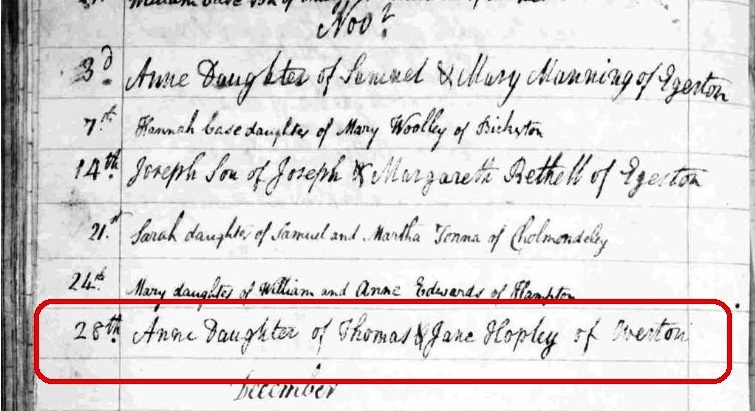 Novr.
3d Anne Daughter of Samuel & Mary Manning of Egerton
7th Hannah base daughter of Mary Woolley of Bickerton
14th Joseph Son of Joseph & Margareth Bethell of Egerton
21st Sarah daughter of Samuel and Martha Tonna of Cholmondeley
24th Mary daughter of William and Anne Edwards of Hampton
28th Anne Daughter of Thomas & Jane Hopley of Overton
December